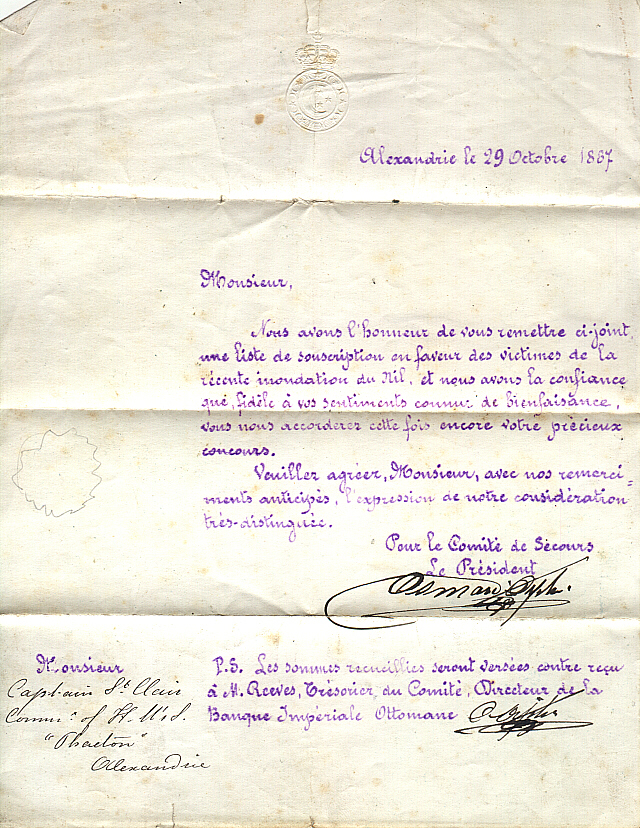 Alexandrie le 29 Octobre 1887
Monsieur,
Nous avons l'honneur de vous remettre ci-joint,
une liste de souscription en faveur des victimes de la
récente inondation du Nil, et nous avons la confiance
que, fidèle à vos sentiments connus de bienfaisance,
vous nous accorderez cette fois encore votre précieux
concours.
Veuillez agréer, Monsieur, avec nos remerci=
ments anticipés, l'expression de notre considération
très-distinguée.
Pour le Comité de Sécours
Le Président
Osman
Monsieur
Captain St Clair
Commr of H.M.S.
"Phaeton"
Alexandrie
P.S. Les sommes recueillies seront versées contre reçu
à M. Reeves, Trésorier, du Comité, Directeur de la
Banque Impériale Ottomane